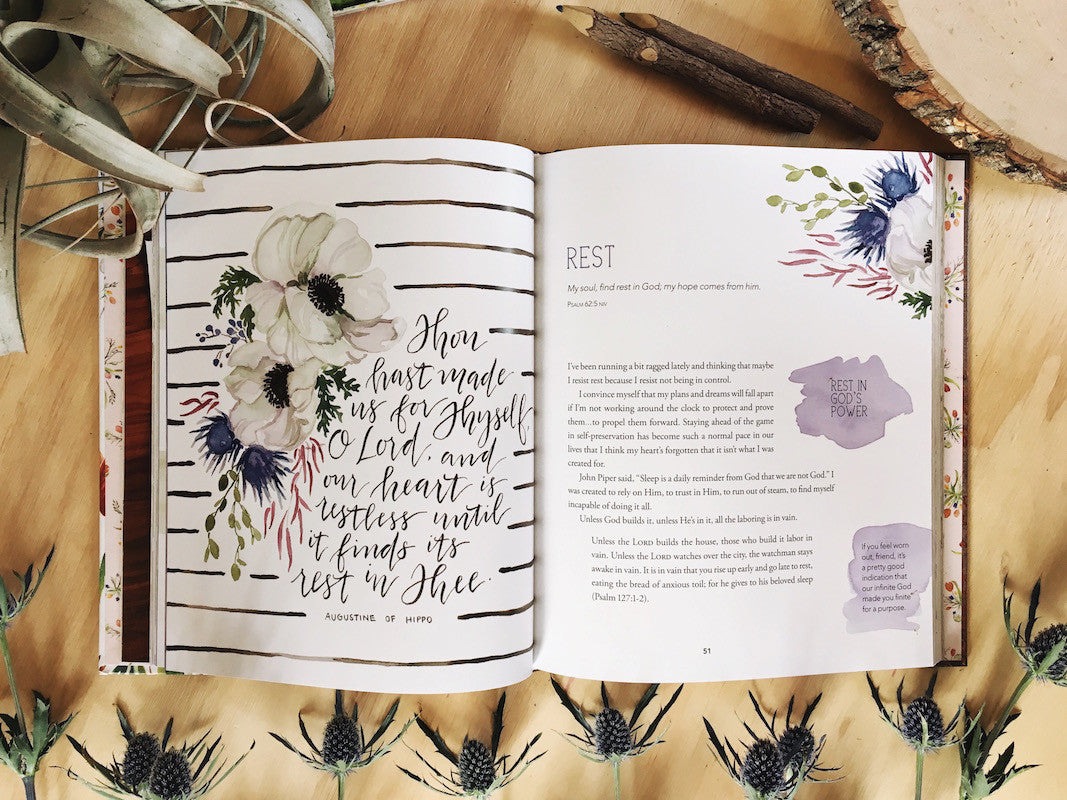 Thou
hast made
us for Thyself,
O Lord, and
our heart is
restless until
it finds its
rest in Thee.
AUGUSTINE OF HIPPO
REST
My soul, find rest in God; my hope comes from him.
PSALM 62:5 NIV
I've been running a bit ragged lately and thinking that maybe
I resist rest because I resist not being in control.
I convince myself that my plans and dreams will fall apart
if I'm not working around the clock to protect and prove
them...to propel them forward. Staying ahead of the game
in self-preservation has become such a normal pace in our
lives that I think my heart's forgotten that it isn't what I was
created for.
John Piper said, "Sleep is a daily reminder from God that we are not God." I
was created to rely on Him, to trust in Him, to run out of steam, to find myself
incapable of doing it all.
Unless God builds it, unless He's in it, all the laboring is in vain.
Unless the LORD builds the house, those who build it labor in
vain. Unless the LORD watches over the city, the watchman stays
awake in vain. It is in vain that you rise up early and go late to rest,
eating the bread of anxious toil; for he gives to his beloved sleep
(Psalm 127:1-2).
REST IN
GOD'S
POWER
If you feel worn
out, friend, it's
a pretty good
indication that
our infinite God
made you finite
for a purpose.
51